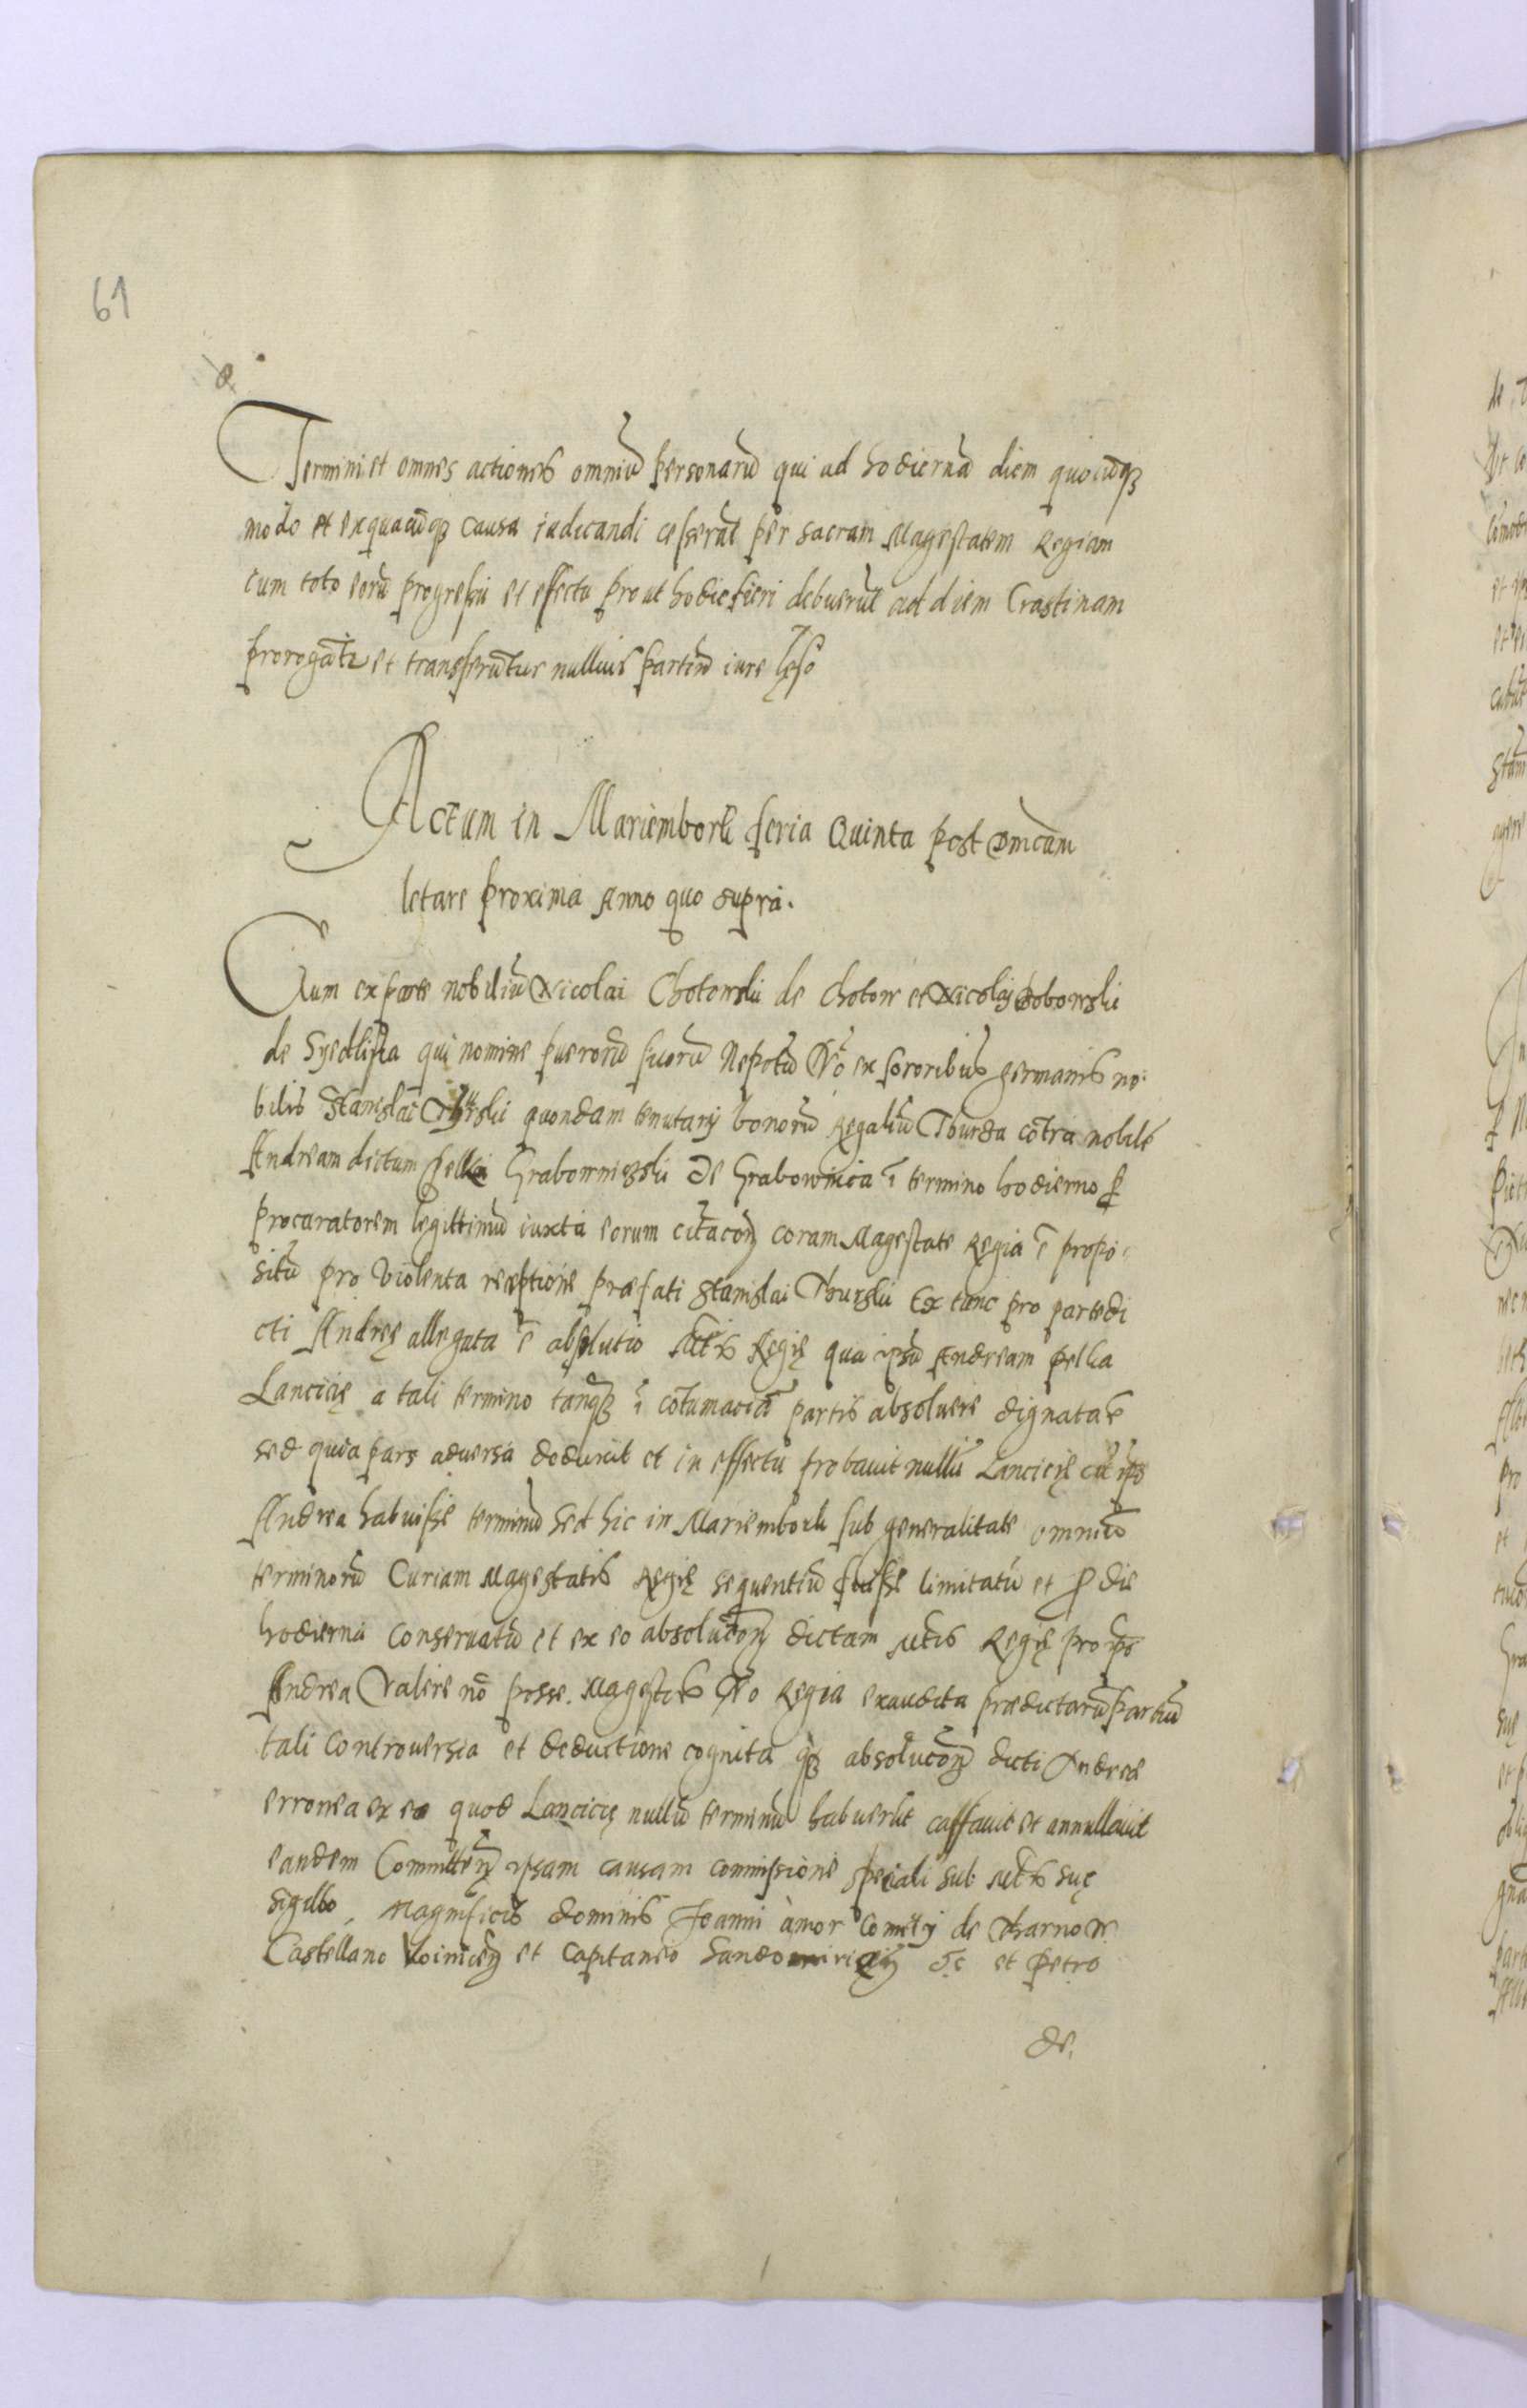 61
Termini et omnes actiones omniū personarū qui ad hodiernā diem quocūqꝫ
modo et ex quacūqꝫ causa iudicandi cesserāt per sacram Magestatem Regiam
cum toto eorū progressu et effectu prout hodie fieri debuerūt ad diem Crastinam
prorogātr et transferūtur nullius partiū iure lęso
Actum in Mariembork feria Quinta post dmcam
letare proxima Anno quo supra.
Cum ex parte nobiliū Nicolai Chotowskii de Chotow et Nicolaj Bobowskii
de Syedliska qui nomine puerorū suorū Nepotū vo ex sororibus germanis no-
bilis Stanislai Thurskii quondam tenutarij bonorū Regaliū Thurza cōtra nobilē
Andream dictum Pelka Grabowniczskii de Grabownica ī termino hodierno ꝑ
procuratorem legittimū iuxta eorum citacoꝫ coram Magestate Regia ē propo-
sitū pro violenta receptione praefati Stanislai Thurskii Ex tunc pro parte di
cti Andreę allegata ē absolutio Mtis Regię qua ipsū Andream Pelka
Lancicię a tali termino tanqꝫ ī cōtumaciā partis absoluere dignata ē
sed quia pars aduersa deduxit et in effectu probauit nullū Lancicię cū ipo
Andrea habuisse terminū sed hic in Mariembork sub generalitate omniū
terminorū Curiam Magestatis Regię sequentiū fuisse limitatū et ꝓ die
hodierna conseruatū et ex eo absolucoꝫ dictam Mtis Regię pro ipo
Andrea valere nō posse. Magestas vo Regia exaudita praedictarū partiū
tali controuersia et deductione cognita qꝫ absolucoꝫ dicti Andreae
erronea ex eo quod Lancicię nullū terminū habuerūt cassauit et annullauit
eandem Committeꝫ ipsam causam commissione speciali sub Mtis suę
sigillo, Magnificis dominis Joanni àmor Comitj de Tharnow
Castellano Voiniceꝫ et Capitaneo Sandomirieꝫ &c et Petro
de.